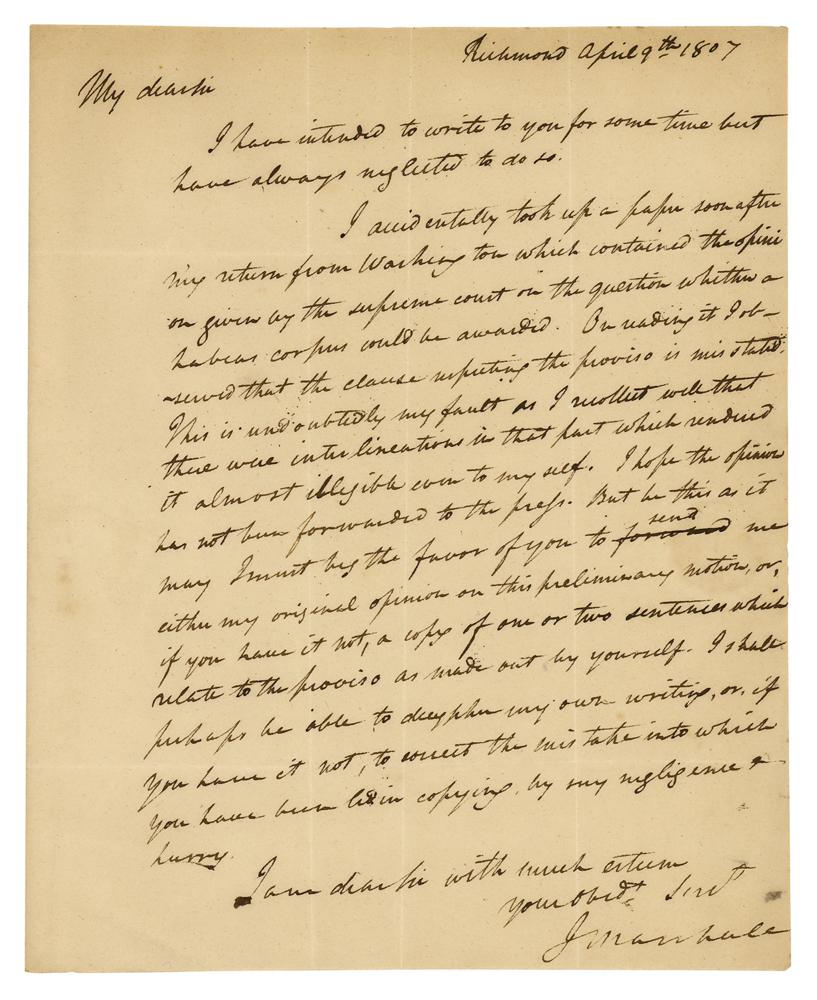 Richmond April 9th 1807
My dear Sir
I have intended to write to you for some time but
have always neglected to do so.
I accidentally took up a paper soon after
my return from Washington which contained the opini
on given by the supreme court on the question whether a
habeas corpus could be awarded. On reading it I ob–
–served that the clause respecting the proviso is mis stated.
This is undoubtedly my fault as I recollect well that
there were interlineations in that part which rendered
it almost illegible even to my self. I hope the opinion
has not been forwarded to the press. But be this as it
may I must beg the favor of you to forward send me
either my original opinion on this preliminary motion, or,
if you have it not, a copy of one or two sentences which
relate to the proviso as made out by yourself. I shall
perhaps be able to decypher my own writing, or, if
you have it not, to correct the mistake into which
you have been led in copying by my negligence &
hurry.
I am dear Sir with much esteem
your Obedt Servt
J Marshall